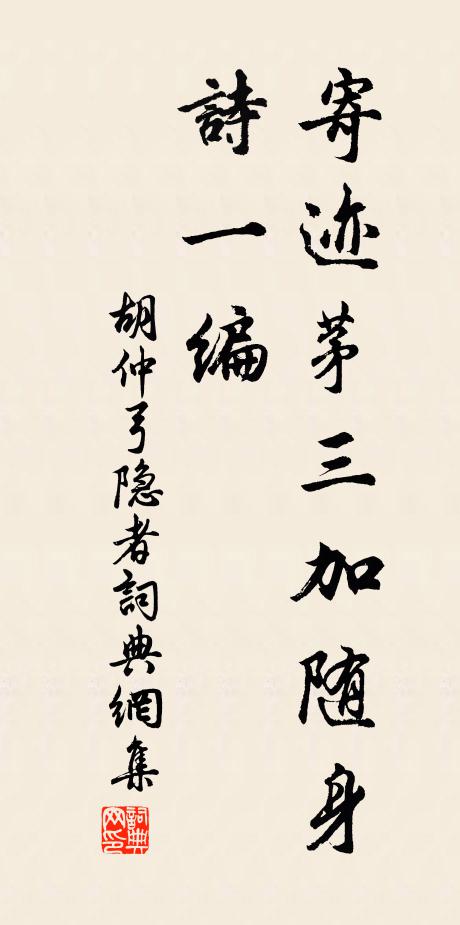 寄迹茅三加随身
詩一编
胡仲弓隐者詞典網集
詞典网印